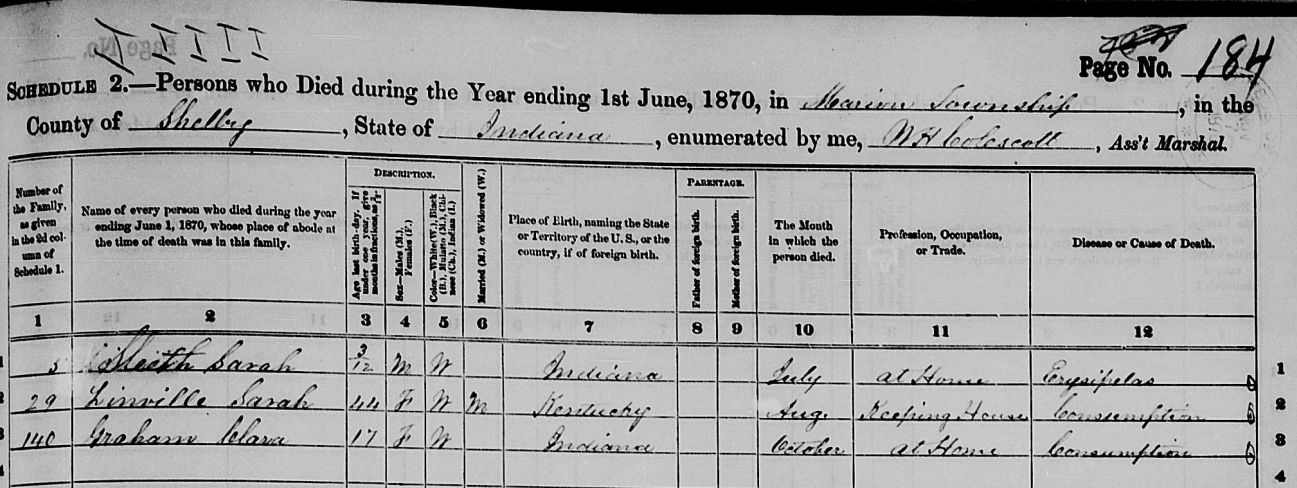 IIIII
Page No. 184
SCHEDULE 2.—Persons who Died during the Year ending 1st June, 1870, in Marion Township, in the
County of Shelby, State of Indiana, enumerated by me, W H Colescott, Ass't Marshal.
Number of the Family, as given in the 2d column of Schedule 1.
Name of every person who died during the year ending June 1, 1870, whose place of abode at the time of death was in this family.
DESCRIPTION.
Age last birth-day. If under one year, give months in fractions, as 3/12
Sex—Males (M.), Females (F.)
Color—White (W.), Black (B.), Mulatto (M.), Chinese (Ch.), Indian (I.)
Married (M.) or Widowed (W.)
Place of Birth, naming the State or Territory of the U. S., or the country, if of foreign birth.
PARENTAGE.
Father of foreign birth.
Mother of foreign birth.
The Month in which the person died.
Profession, Occupation, or Trade.
Disease or Cause of Death.
1 2 3 4 5 6 7 8 9 10 11 12
1 5 Sarah 3/12 M W Indiana July at Home Erysipelas 1
2 29 Linville Sarah 44 F W M Kentucky Aug. Keeping House Consumption 2
3 140 Graham Clara 17 F W Indiana October at Home Consumption 3
4 4